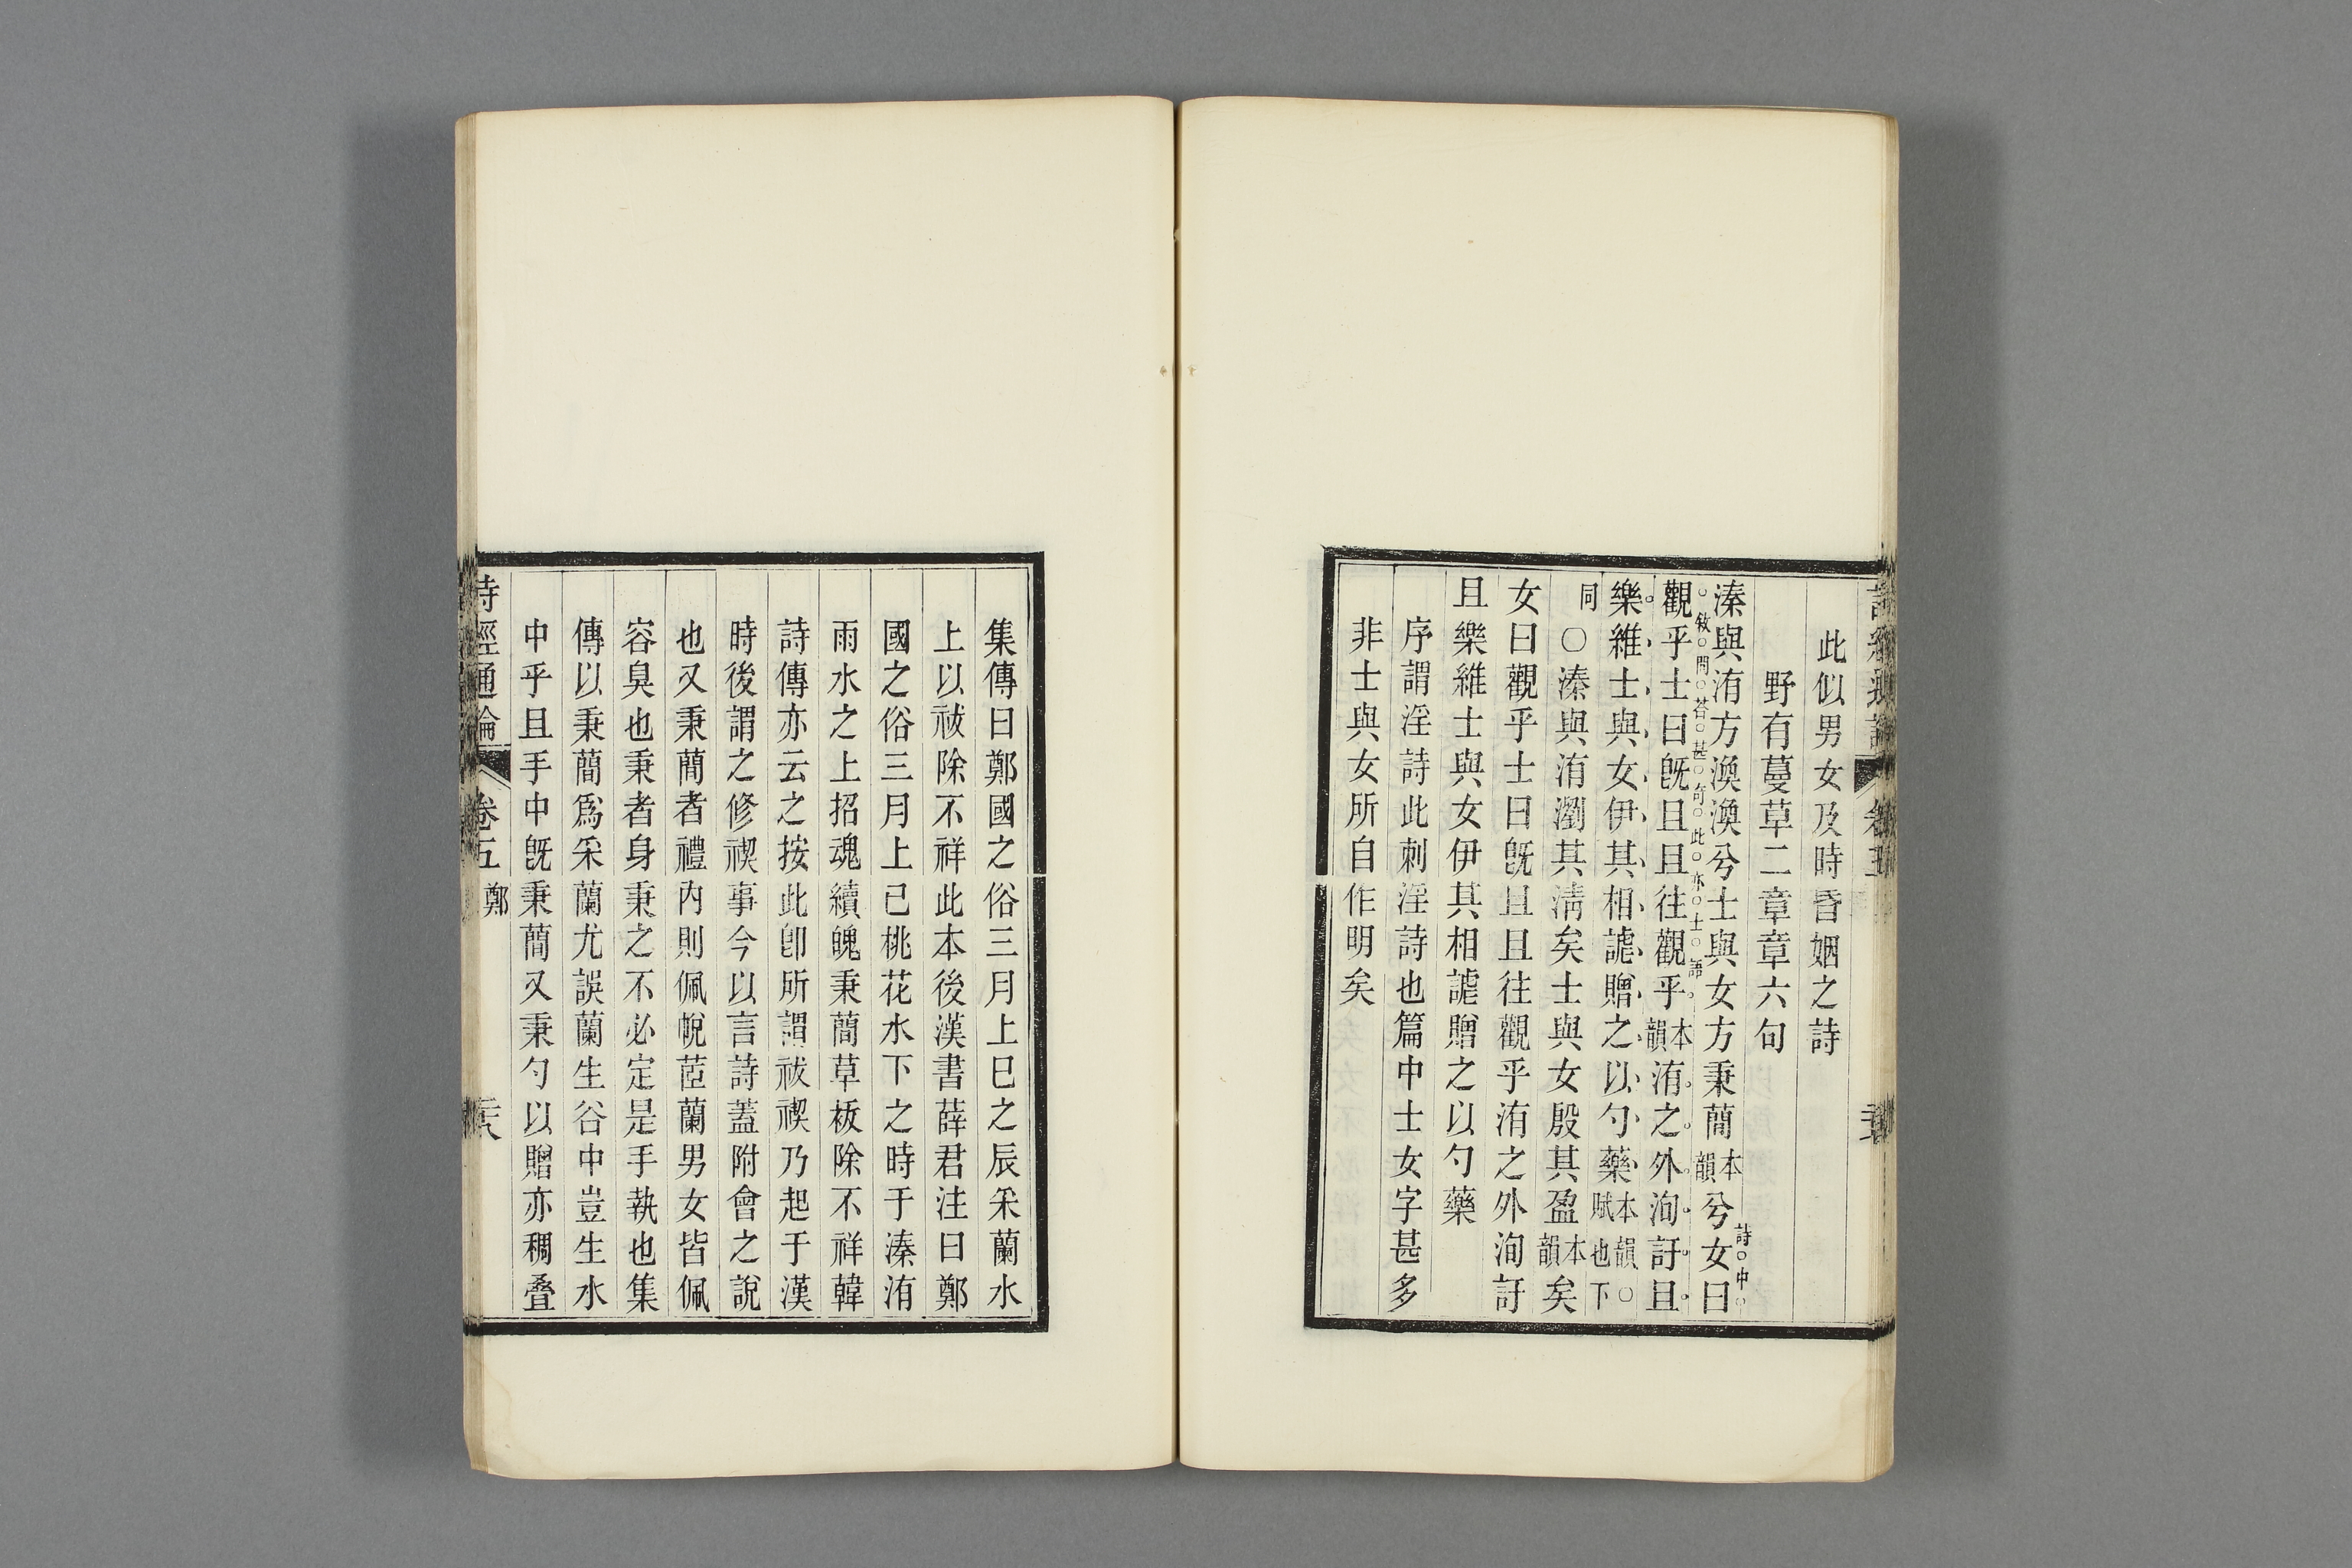 此似男女及時昏姻之詩
野有蔓草二章章六句
溱與洧方渙渙兮士與女方秉蕳本韻兮女曰
詩中
敘問答甚奇此亦士語
觀乎士曰旣且且往觀乎本韻洧之外洵訏且
樂維士與女伊其相謔贈之以勺藥本韻○賦也下
同○溱與洧瀏其淸矣士與女殷其盈本韻矣
女曰觀乎士曰旣且且往觀乎洧之外洵訏
且樂維士與女伊其相謔贈之以勺藥
序謂淫詩此刺淫詩也篇中士女字甚多
非士與女所自作明矣
集傳曰鄭國之俗三月上巳之辰采蘭水
上以祓除不祥此本後漢書薛君注曰鄭
國之俗三月上已桃花水下之時于溱洧
雨水之上招魂續魄秉蕳草祓除不祥韓
詩傳亦云之按此卽所謂祓禊乃起于漢
時後謂之修禊事今以言詩蓋附會之說
也又秉蕳者禮內則佩帨茝蘭男女皆佩
容臭也秉者身秉之不必定是手執也集
傳以秉蕳爲采蘭尤誤蘭生谷中豈生水
中乎且手中旣秉蕳又秉勺以贈亦稠叠
詩經通論 卷五 鄭